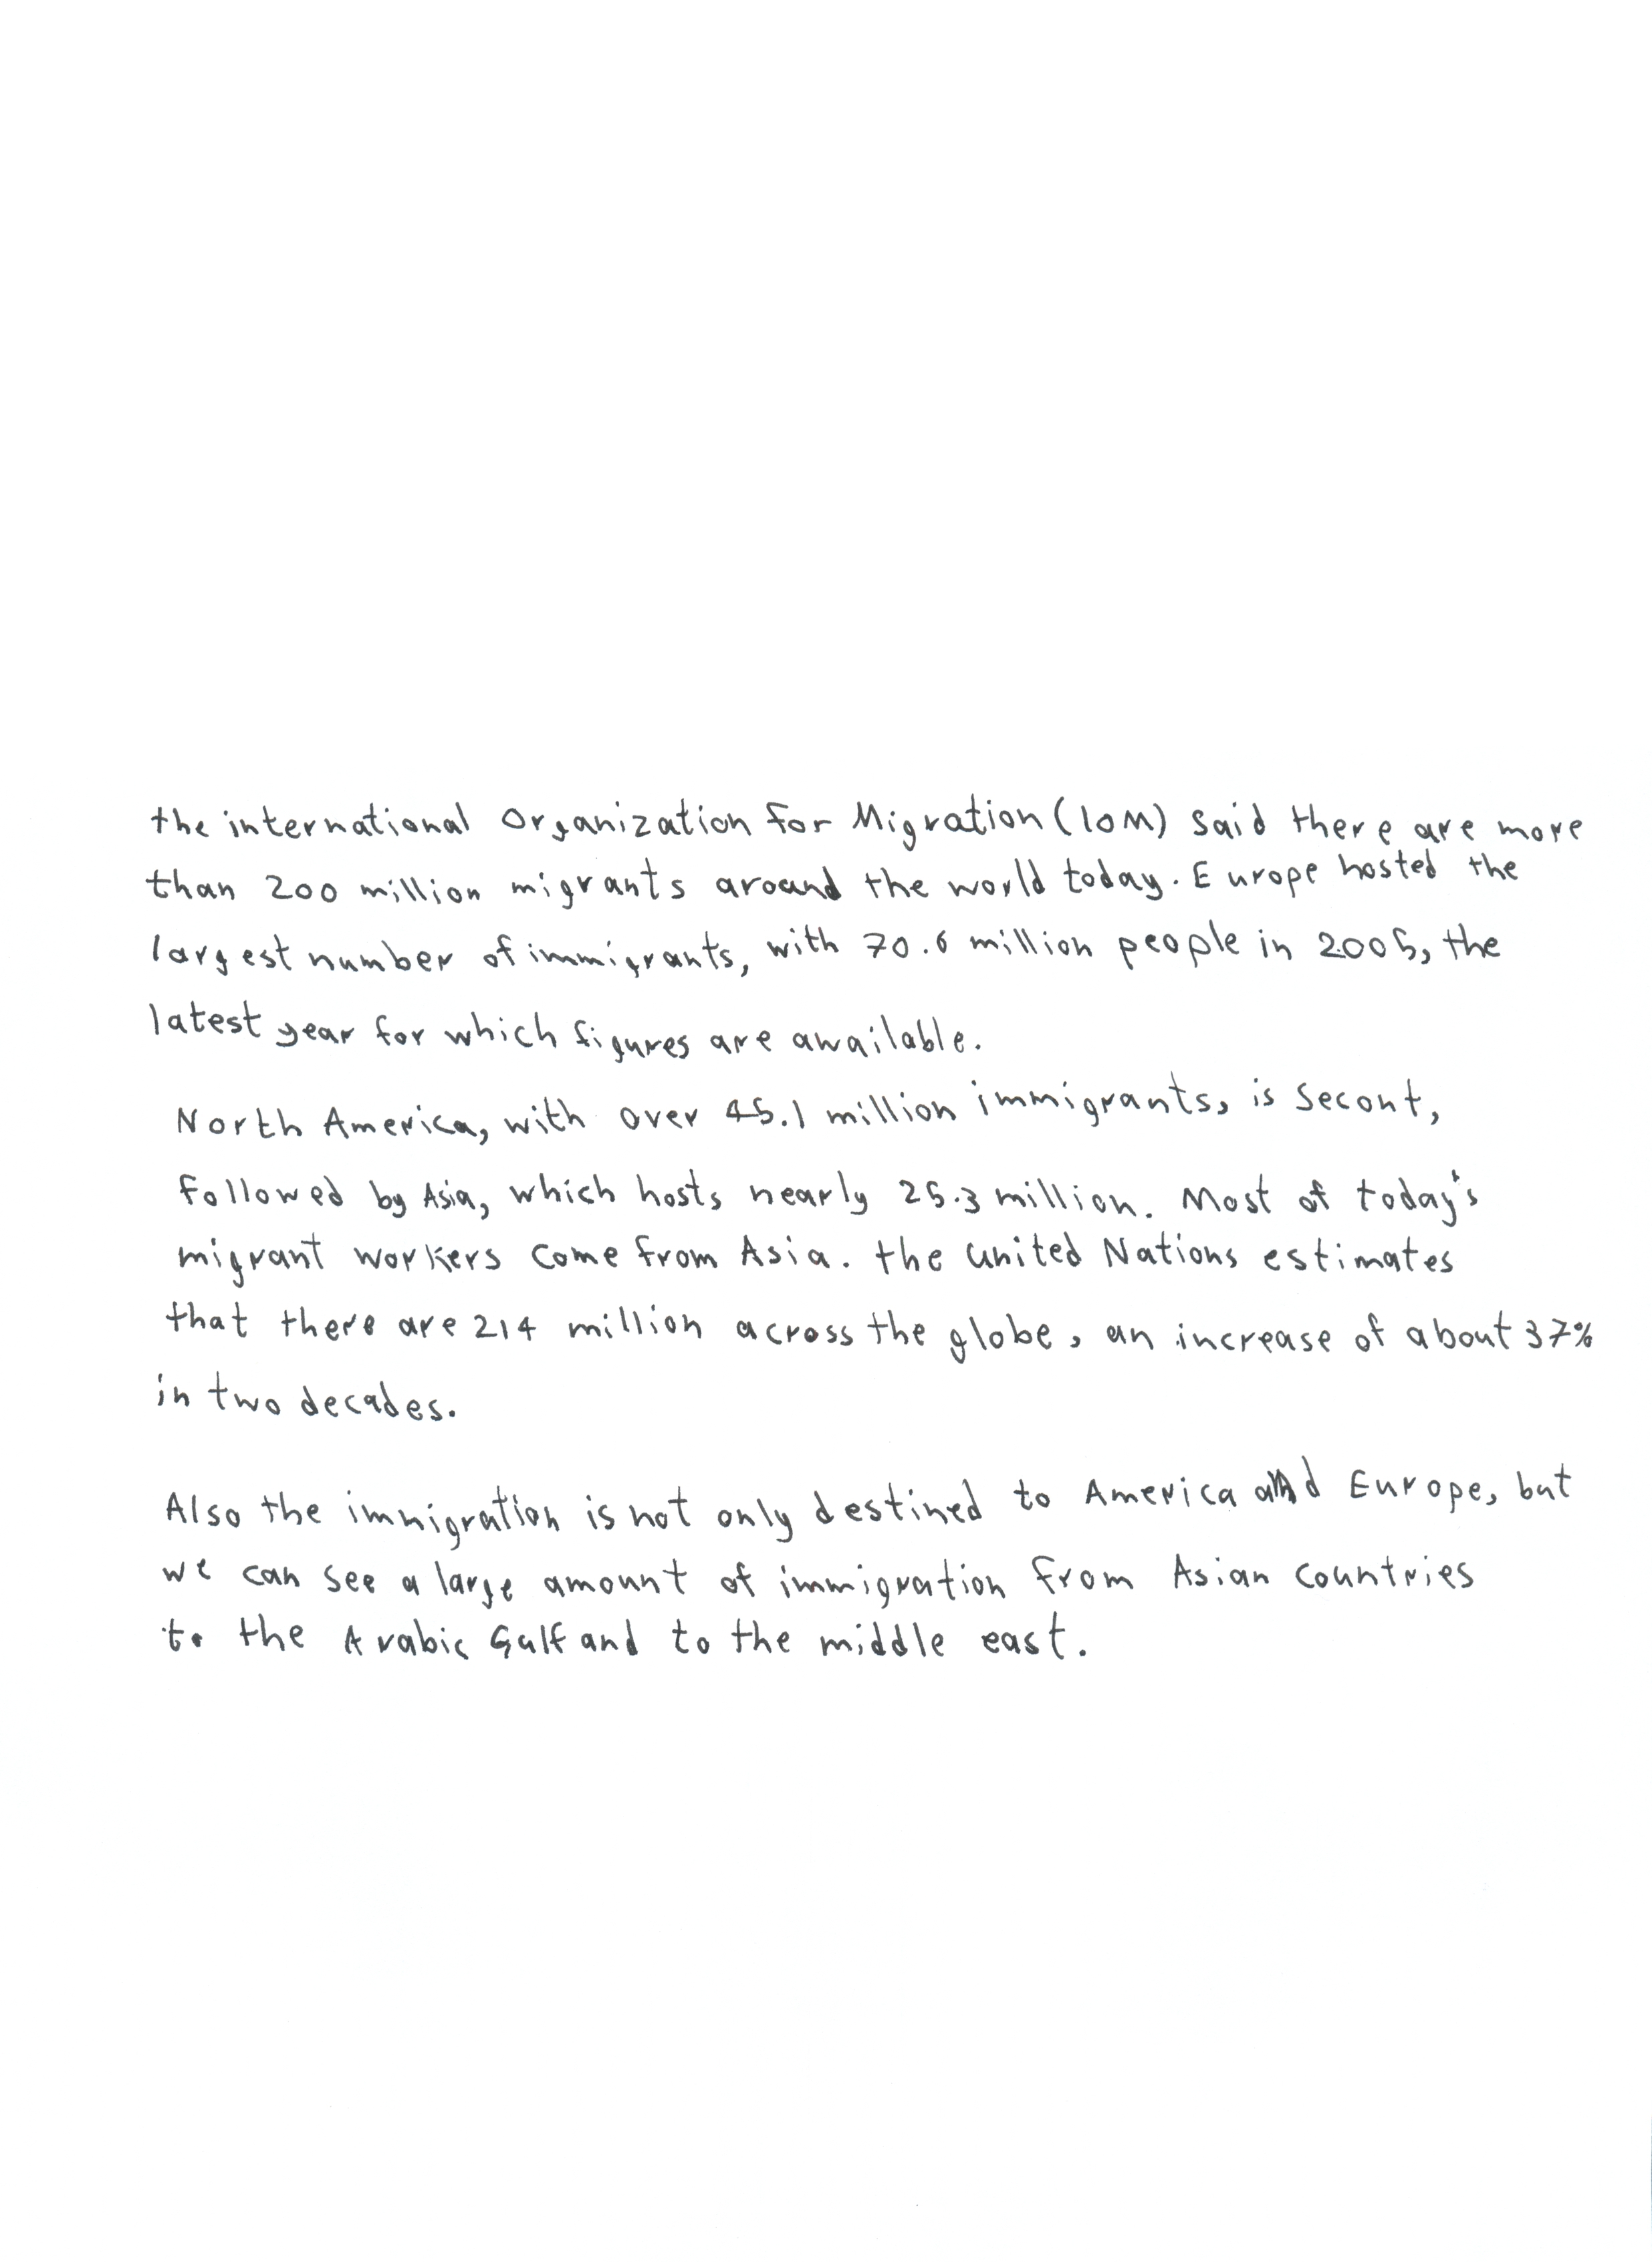 the international Organization for Migration (IOM) said there are more
than 200 million migrants around the world today. Europe hosted the
largest number of immigrants, with 70.6 million people in 2005, the
latest year for which figures are awailable.
North America, with over 45.1 million immigrants, is Secont,
followed by Asia, which hosts nearly 25.3 million. Most of today's
migrant workers come from Asia. the united Nations estimates
that there are 214 million across the globe, an increase of about 37%
in two decades.
Also the immigration is not only destined to America and Europe, but
we can see a large amount of immigration from Asian countries
to the Arabic Gulf and to the middle east.